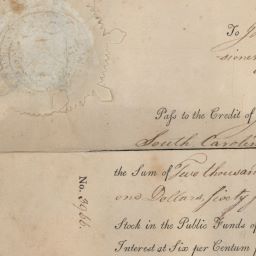 To
sioner
Pass to the Credit of
South Carolin
the Sum of Two thousan
one Dollars, sixty
Stock in the Public Funds of
Interest at Six per Centum
No. 3966.